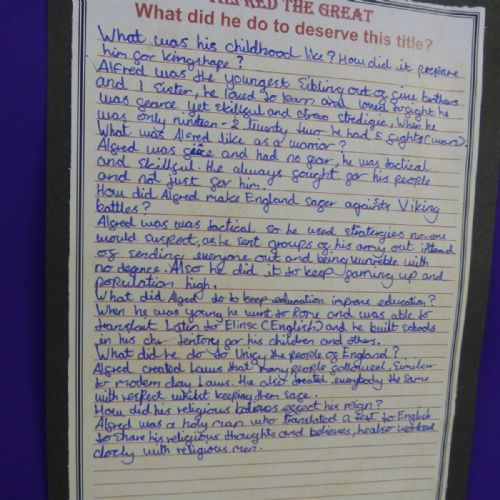 ALFRED THE GREAT
What did he do to deserve this title?
What was his childhood like? How did it prepare
him for kingshape?
Alfred was the youngest Sibling out of five brothers
and 1 Sister, he loved to learn and loved to fight he
was fearce yet skillful and stradigic. When he
was only ninteen - 2 twenty two he had 5 fights (wars).
What was Alfred like as a warrior?
Alfred was and had no fear, he was tactical
and skillful. He always fought for his people
and not just for him.
How did Alfred make England safer against Viking
battles?
Alfred was was tactical so he used stratergies no-one
would suspect, as he sent groups of his army out instead
of sending everyone out and being with
no defence. Also he did it to keep farming up and
population high.
What did Alfred do to keep education improve education?
When he was young he went to Rome and was able to
translait Latin to (English) and he built schools
in his for his children and others.
What did he do to Unify the people of England?
Alfred created Laws that many people followed. Similar
to modern day Laws. He also treated everybody the same
with respect whilst keeping them safe.
How did his religious believes effect his reign?
Alfred was a holy man who translated a text to English
to share his religious thoughts and believes, he also worked
closly with religious men.